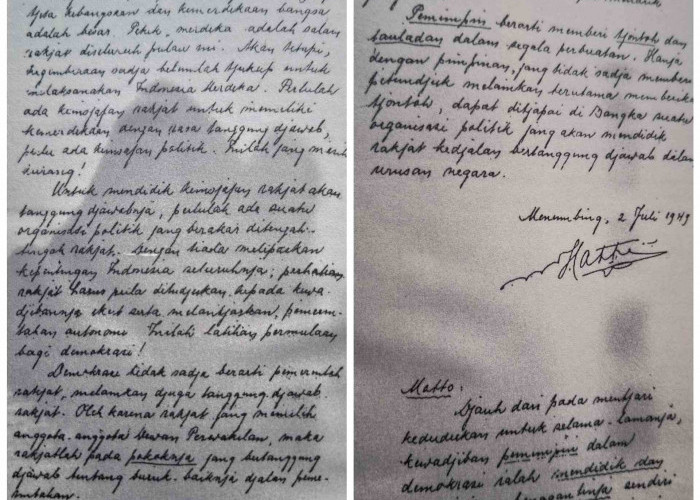 tjita kebangsaan dan kemerdekaan bangsa
adalah besar. Pekik "merdeka" adalah salam
rakjat diseluruh pulau ini. Akan tetapi,
kegembiraan sadja belumlah tjukup untuk
melaksanakan Indonesia Merdeka. Perlulah
ada keinsjafan rakjat untuk memiliki
kemerdekaan dengan rasa tanggung djawab,
perlu ada keinsjafan politik. Inilah jang masih
kurang!
Untuk mendidik keinsjafan rakjat akan
tanggung djawabnja, perlulah ada suatu
organisasi politik jang berakar ditengah-
tengah rakjat. Dengan tiada melupakan
kepentingan Indonesia seluruhnja, perhatian
rakjat harus pula ditudjukan kepada kewa-
djibannja ikut serta melantjarkan, pemerin-
tahan autonomi. Inilah latihan permulaan
bagi demokrasi!
Demokrasi tidak sadja berarti pemerintah
rakjat, melainkan djuga tanggung djawab
rakjat. Oleh karena rakjat jang memilih
anggota-anggota Dewan Perwakilan, maka
rakjatlah pada pokoknja jang bertanggung
djawab tentang buruk-baiknja djalan peme-
rintahan.
Pemimpin berarti memberi tjontoh dan
tauladan dalam segala perbuatan. Hanja
dengan pimpinan, jang tidak sadja memberi
petundjuk melainkan terutama memberikan
tjontoh, dapat ditjapai di Bangka suatu
organisasi politik jang akan mendidik
rakjat kedjalan bertanggung djawab dalam
urusan negara.
Menumbing, 2 Juli 1949
Hatta
Motto:
Djauh dari pada mentjari
kedudukan untuk selama-lamanja,
kewadjiban pemimpin dalam
demokrasi ialah mendidik dan
sendiri